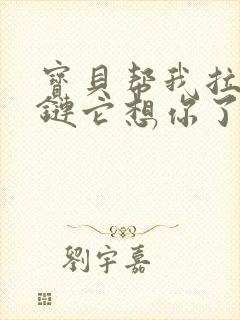 寶貝幇我拉
鏈它想你了
劉宇嘉